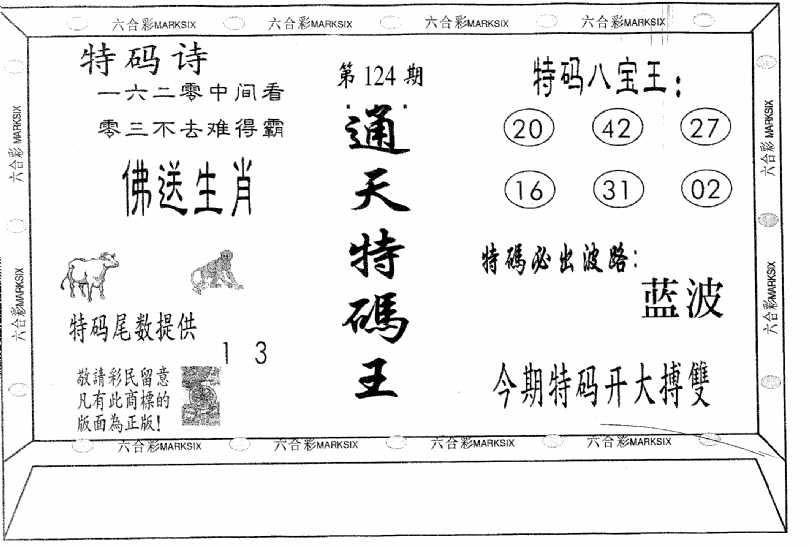 六合彩MARKSIX 六合彩MARKSIX 六合彩MARKSIX 六合彩MARKSIX
六合彩MARKSIX
六合彩MARKSIX
特码诗
一六二零中间看
零三不去难得霸
佛送生肖
特码尾数提供
1 3
敬請彩民留意
凡有此商標的
版面為正版!
第124期
通天特碼王
特码八宝王:
20 42 27
16 31 02
特碼必出波路:
蓝波
今期特码开大搏雙
六合彩MARKSIX
六合彩MARKSIX
六合彩MARKSIX 六合彩MARKSIX 六合彩MARKSIX 六合彩MARKSIX